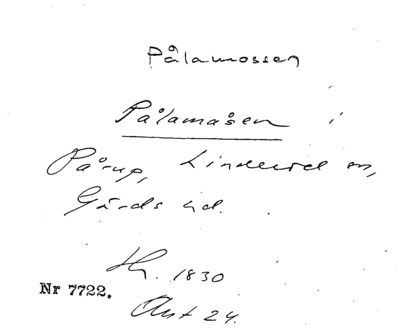 Pålamossen
Pålamåsen i
Pårup, Linderöd sn,
Gärds hd.
Hr. 1830
Nr 7722.
Akt 24.